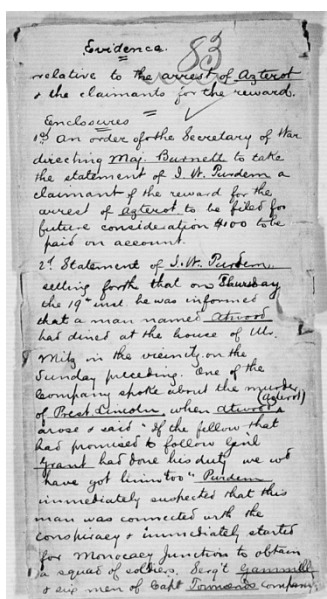 Evidence. 83
relative to the arrest of Azterot
& the claimants for the reward.
Enclosures
1st An order of the Secretary of War
directing Maj. Burnett to take
the statement of J. W. Purdem a
claimant of the reward for the
arrest of Azterot to be filed for
future consideration $100 to be
paid on account.
2d Statement of J. W. Purdem
setting forth that on Thursday
the 19th inst. he was informed
that a man named Atwood
had dined at the house of Mr.
Metz in the vicinity on the
Sunday preceding. One of the
company spoke about the murder
of Prest Lincoln, when Atwood (Azterot)
arose & said "If the fellow that
had promised to follow Genl
Grant had done his duty we wd
have got him too" Purdem
immediately suspected that this
man was connected with the
conspiracy & immediately started
for Monocacy Junction to obtain
a squad of soldiers. Serg't Gemmill
& six men of Capt Townsends Company